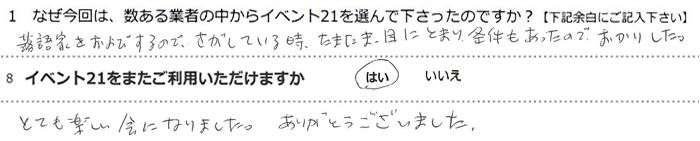 1 なぜ今回は、数ある業者の中からイベント21を選んで下さったのですか？【下記余白にご記入下さい】
落語家をおよびするので、さがしている時、たまたま目にとまり、条件もあったので、おかりした。
8 イベント21をまたご利用いただけますか はい いいえ
とても楽しい会になりました。 ありがとうございました。